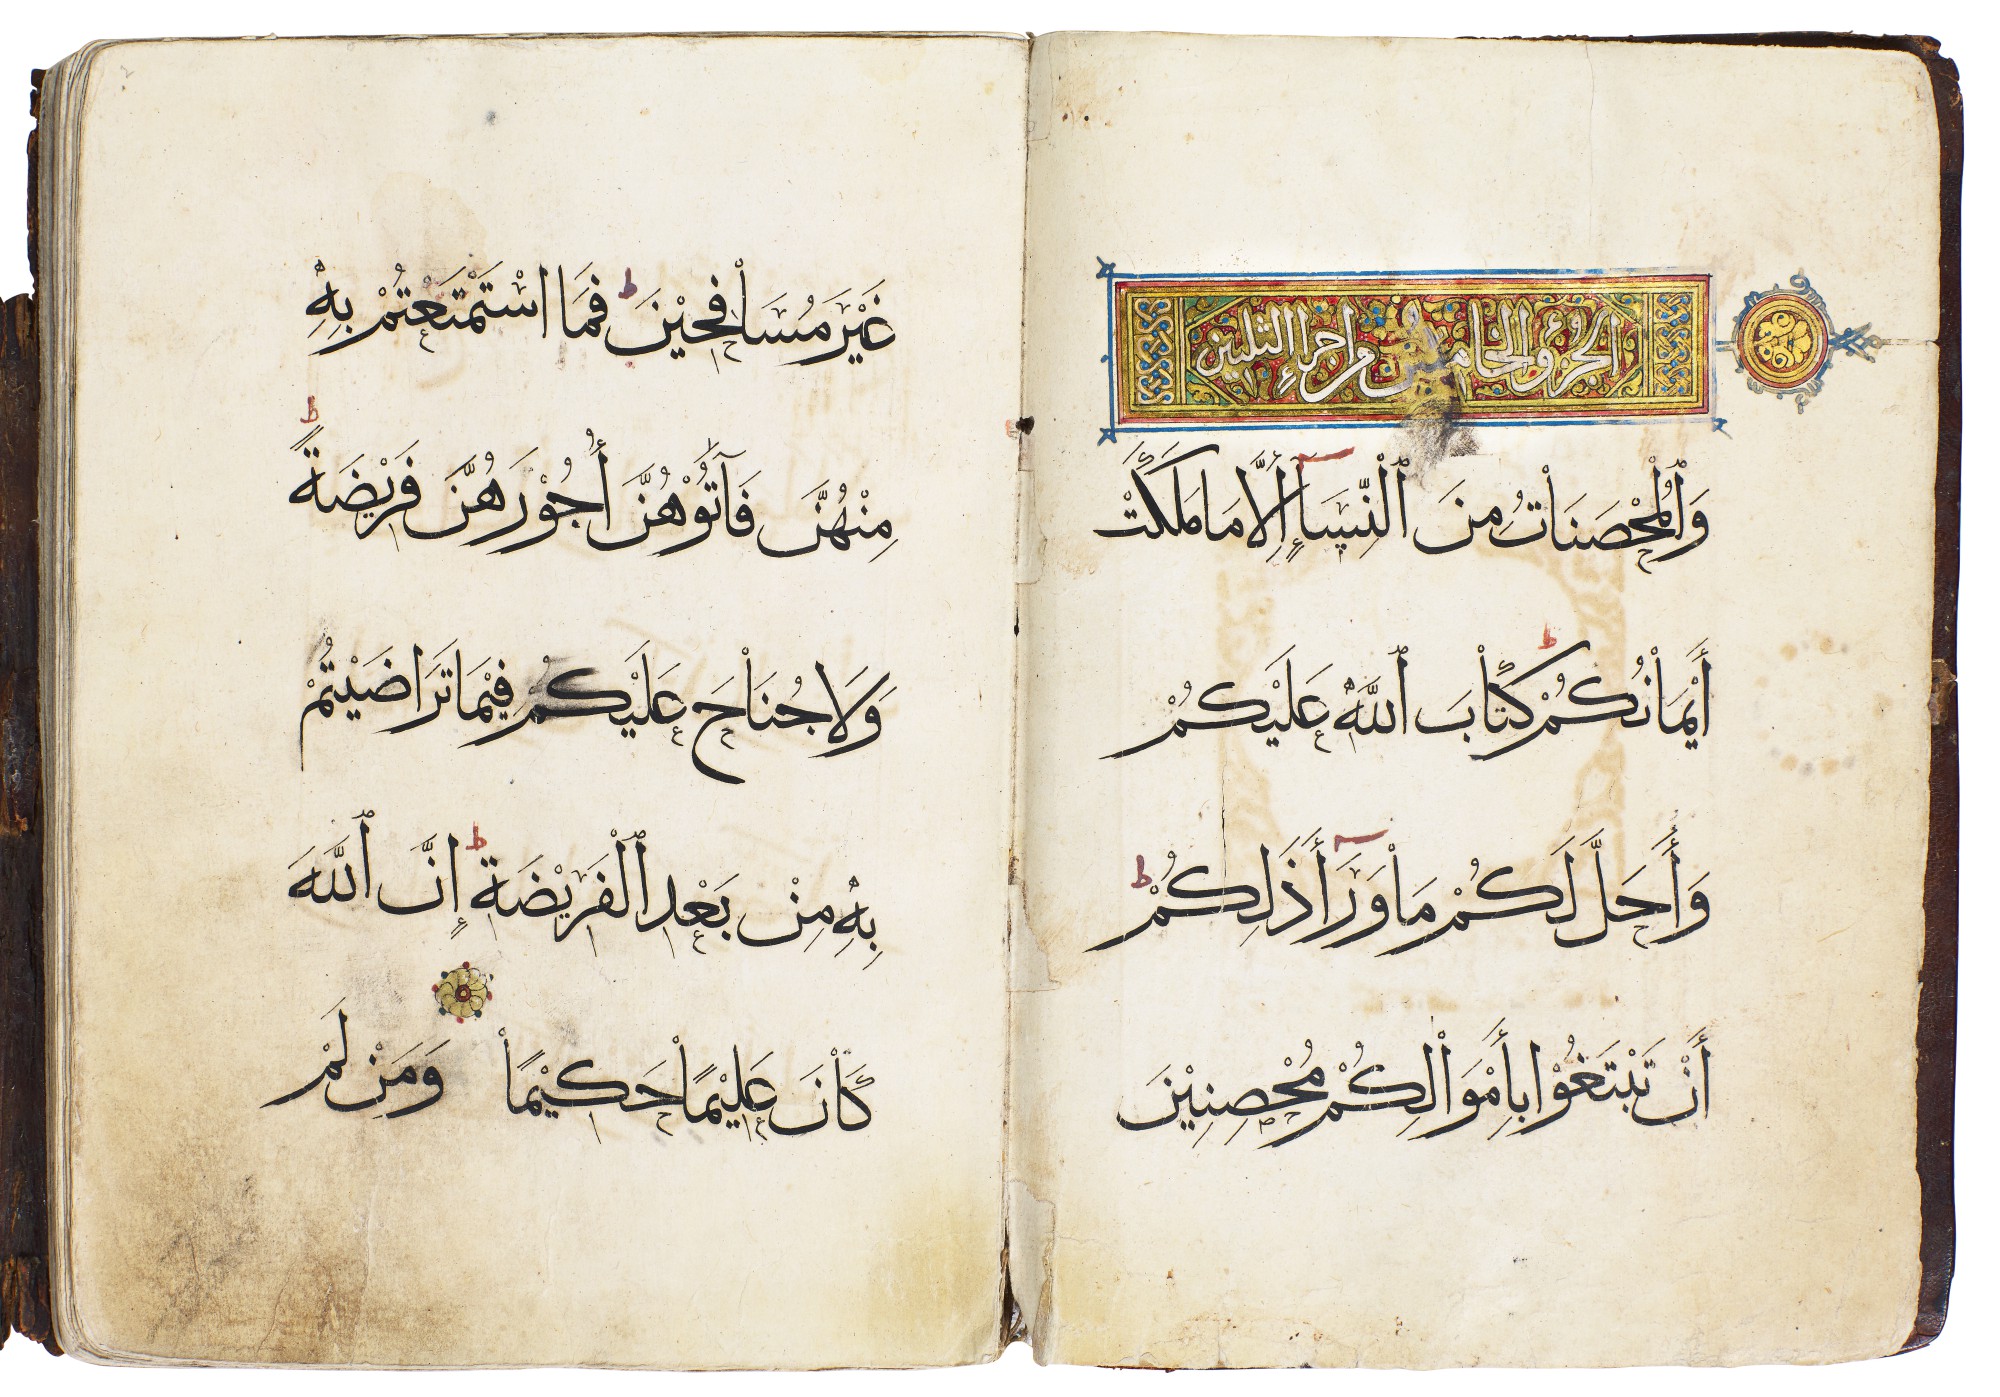 الجزؤ الخامس من اجزاء الثلثين
وَالْمُحْصَنَاتُ مِنَ النِّسَاءِ إِلَّا مَا مَلَكَتْ
أَيْمَانُكُمْ ط كِتَابَ اللَّهِ عَلَيْكُمْ
وَأُحِلَّ لَكُمْ مَا وَرَاءَ ذَلِكُمْ ط
أَنْ تَبْتَغُوا بِأَمْوَالِكُمْ مُحْصِنِيْنَ
غَيْرَ مُسَافِحِيْنَ ط فَمَا اسْتَمْتَعْتُمْ بِهِ
مِنْهُنَّ فَآتُوْهُنَّ أُجُوْرَهُنَّ فَرِيْضَةً ط
وَلَا جُنَاحَ عَلَيْكُمْ فِيْمَا تَرَاضَيْتُمْ
بِهِ مِنْ بَعْدِ الْفَرِيْضَةِ ط إِنَّ اللَّهَ
كَانَ عَلِيْمًا حَكِيْمًا وَمَنْ لَمْ